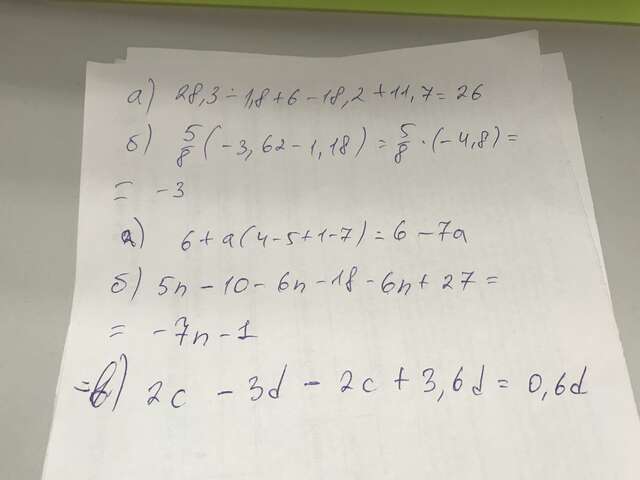 а) 28,3 - 1,8 + 6 - 18,2 + 11,7 = 26
б) 5/8 (-3,62 - 1,18) = 5/8 · (-4,8) =
= -3
а) 6 + a(4 - 5 + 1 - 7) = 6 - 7a
б) 5n - 10 - 6n - 18 - 6n + 27 =
= -7n - 1
= в) 2c - 3d - 2c + 3,6d = 0,6d